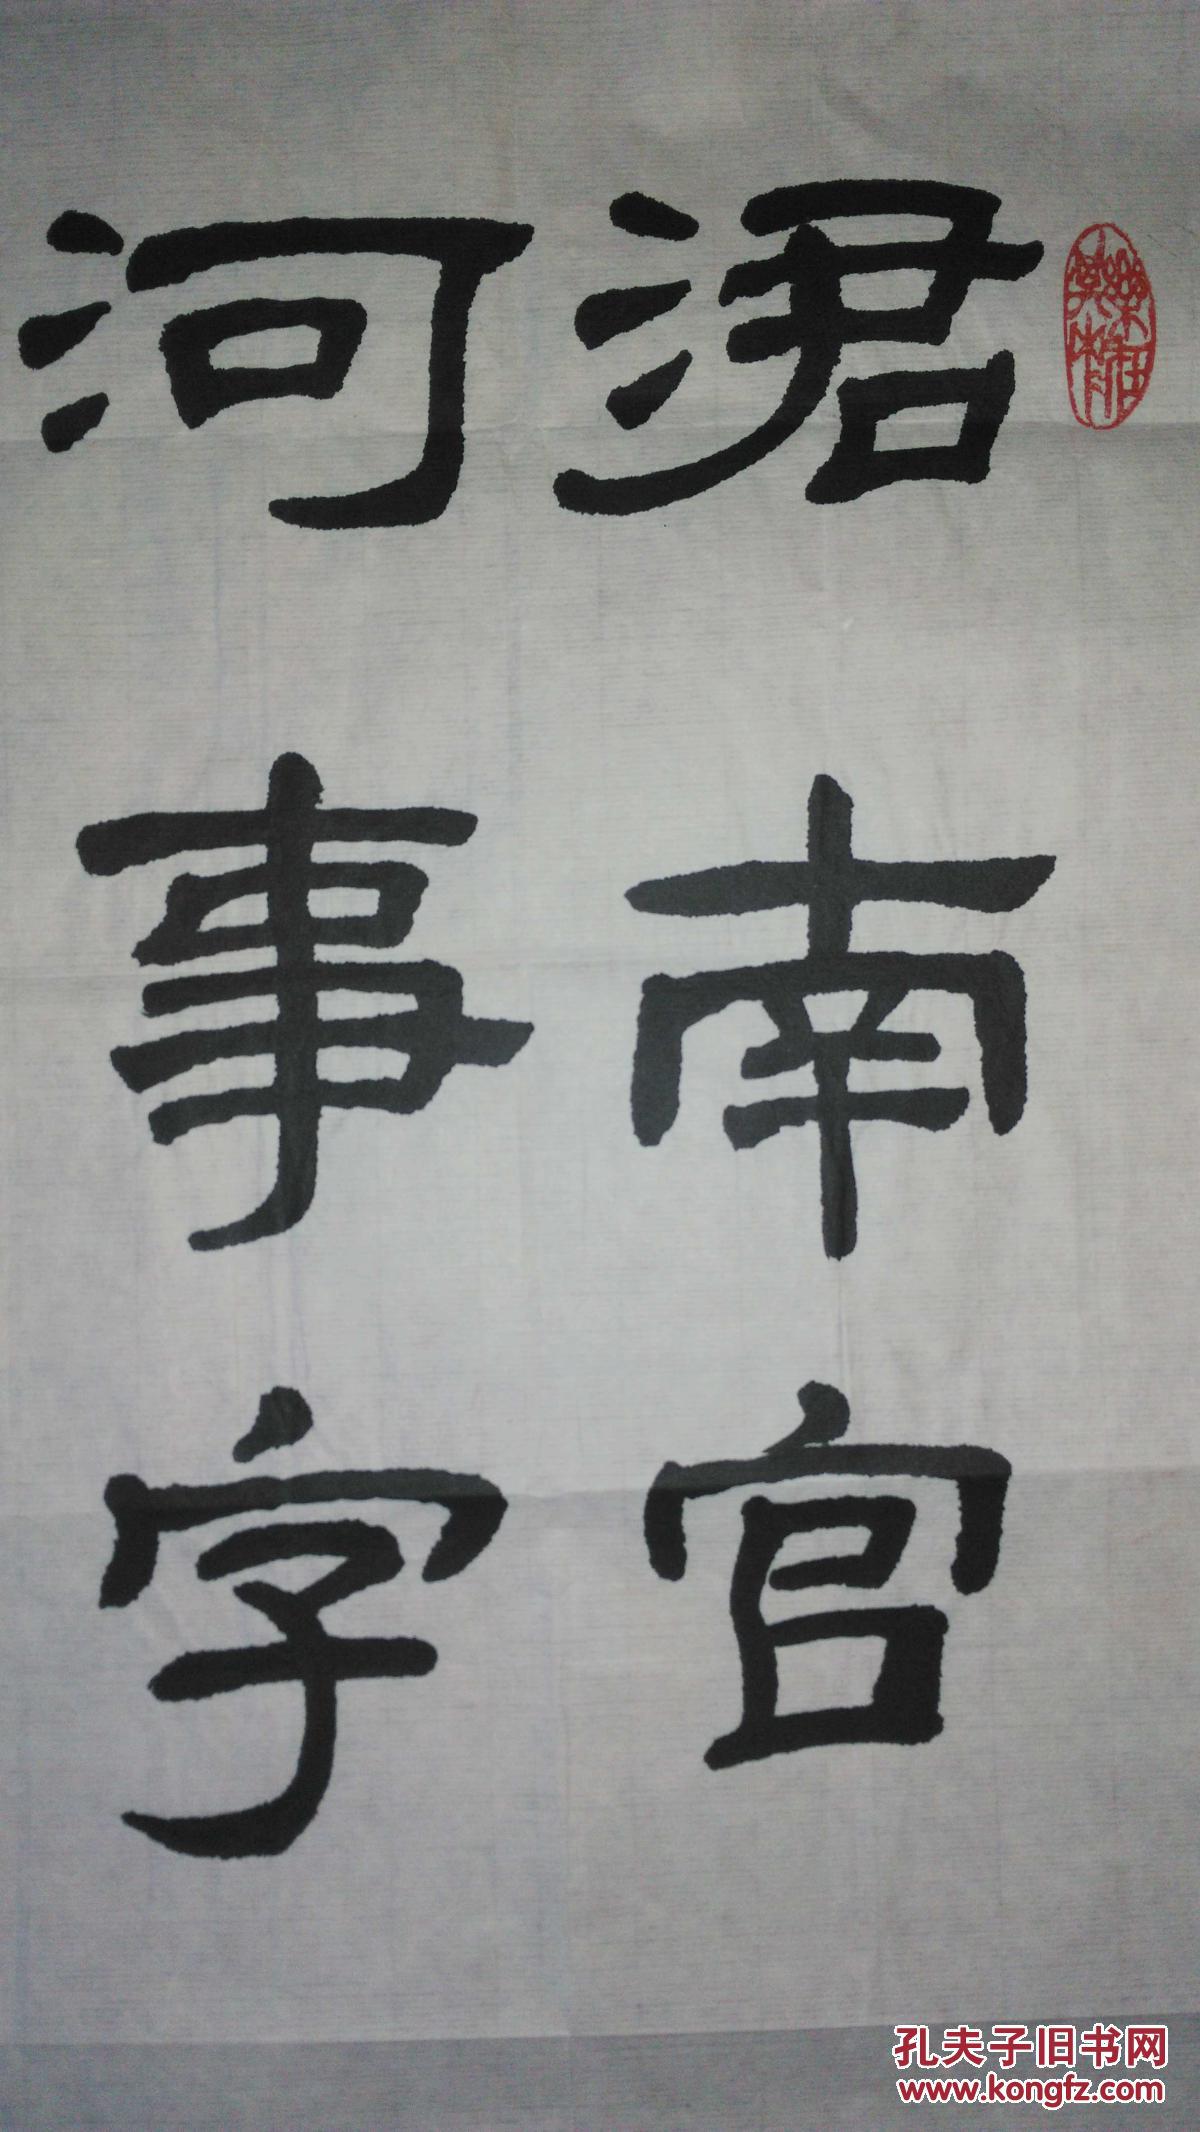 涒南官
河事字
孔夫子旧书网
www.kongfz.com